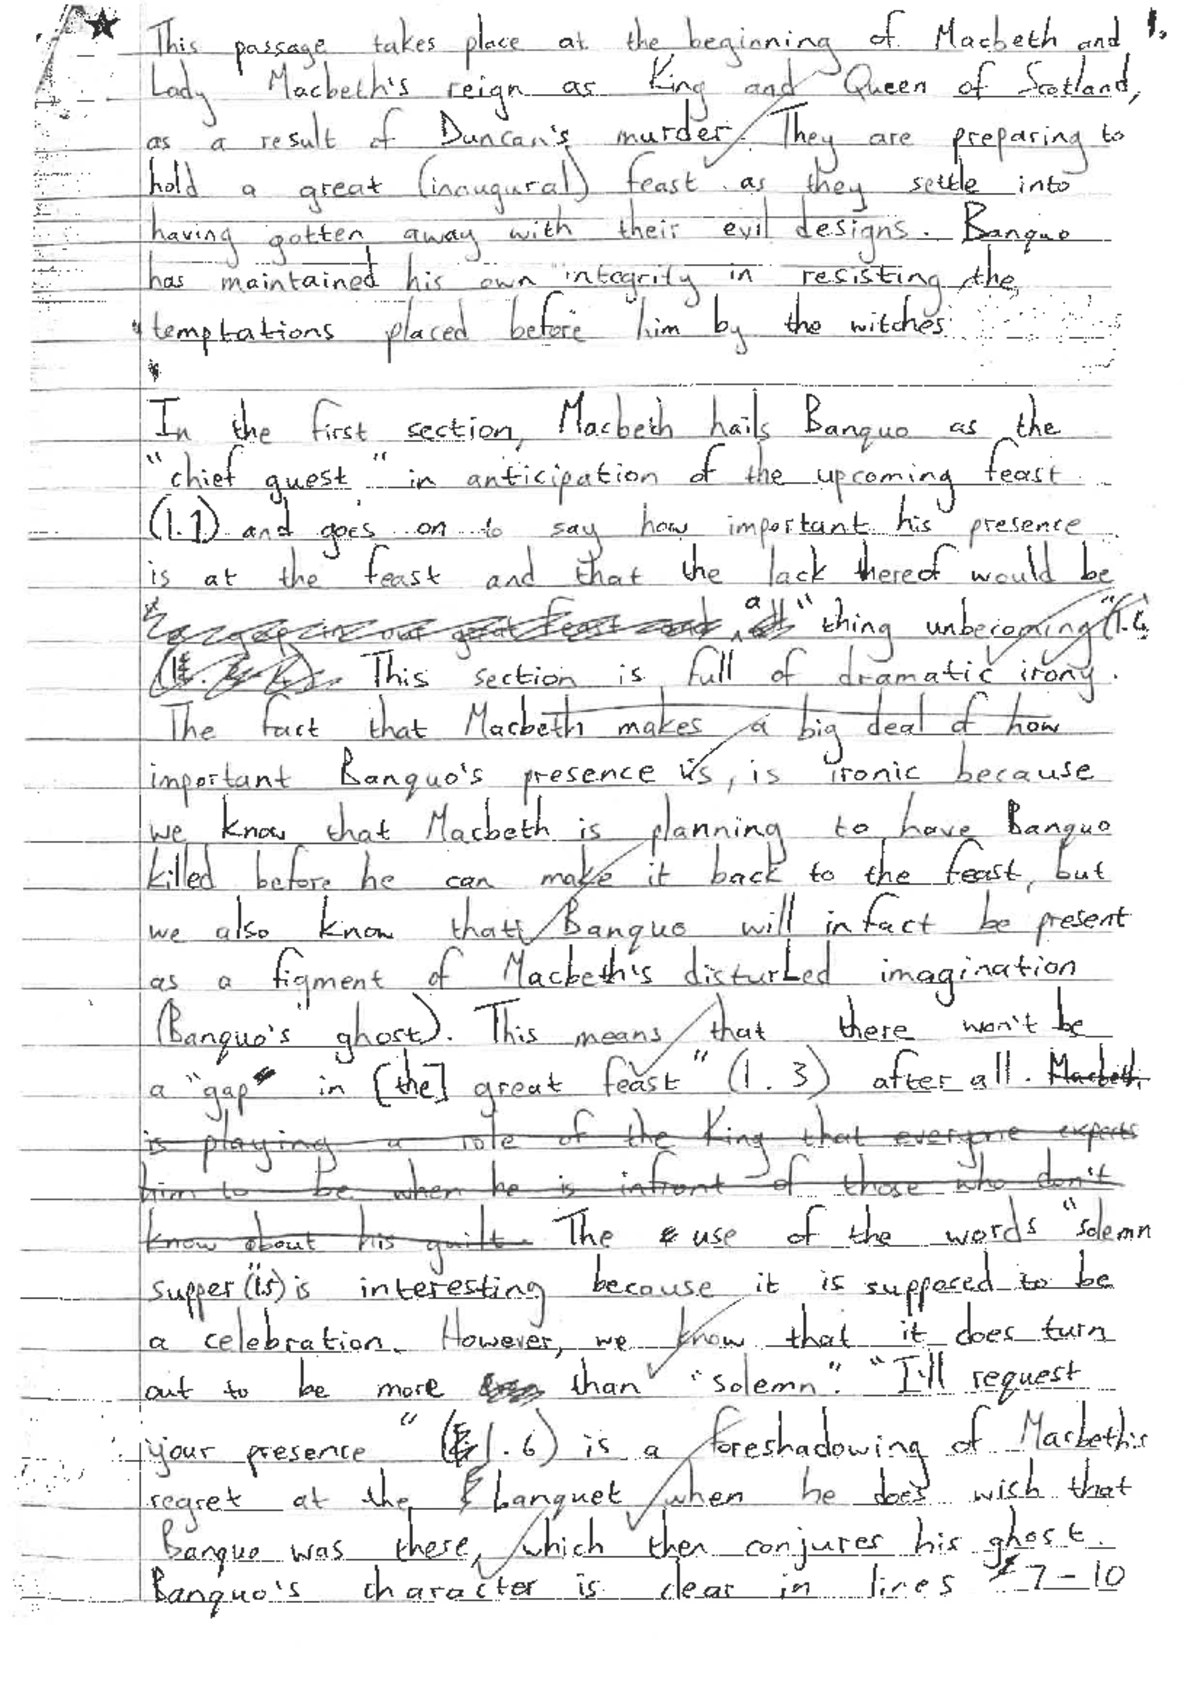 This passage takes place at the beginning of Macbeth and 1.
Lady Macbeth's reign as King and Queen of Scotland,
as a result of Duncan's murder. They are preparing to
hold a great (inaugural) feast as they settle into
having gotten away with their evil designs. Banquo
has maintained his own integrity in resisting the
temptations placed before him by the witches.
In the first section, Macbeth hails Banquo as the
"chief guest" in anticipation of the upcoming feast
(l.1) and goes on to say how important his presence
is at the feast and that the lack thereof would be
a "thing unbecoming"
This section is full of dramatic irony.
The fact that Macbeth makes a big deal of how
important Banquo's presence is, is ironic because
we know that Macbeth is planning to have Banquo
killed before he can make it back to the feast, but
we also know that Banquo will infact be present
as a figment of Macbeth's disturbed imagination
(Banquo's ghost). This means that there won't be
a "gap in [the] great feast" (l. 3) after all. Macbeth
is playing a role of the King that everyone expects
him to be when he is infront of those who don't
know about his guilt. The use of the words "solemn
supper" (l.5) is interesting because it is supposed to be
a celebration. However, we know that it does turn
out to be more than "solemn". "I'll request
your presence" (l. 6) is a foreshadowing of Macbeth's
regret at the banquet when he does wish that
Banquo was there, which then conjures his ghost.
Banquo's character is clear in lines 7-10